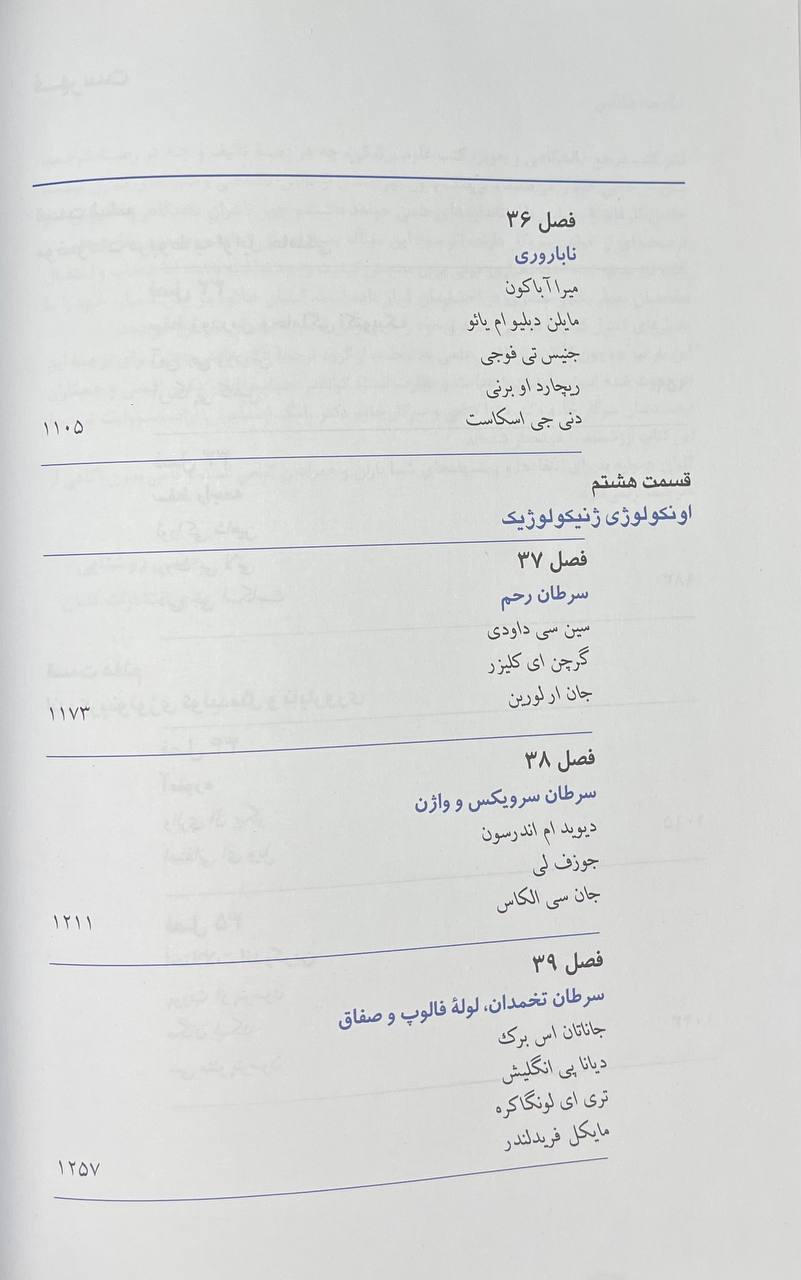 فصل ۳۶
ناباروری
میرا آباکون
مایلن دبلیو ام یائو
جنیس تی فوجی
ریچارد او برنی
دنی جی اسکاست
۱۱۰۵
قسمت هشتم
اونکولوژی ژنیکولوژیک
فصل ۳۷
سرطان رحم
سین سی داودی
گرچن ای کلیزر
جان ار لورین
۱۱۷۳
فصل ۳۸
سرطان سرویکس و واژن
دیوید ام اندرسون
جوزف لی
جان سی الکاس
۱۲۱۱
فصل ۳۹
سرطان تخمدان، لولهٔ فالوپ و صفاق
جاناتان اس برک
دیانا پی انگلیش
تری ای لونگاکره
مایکل فریدلندر
۱۲۵۷